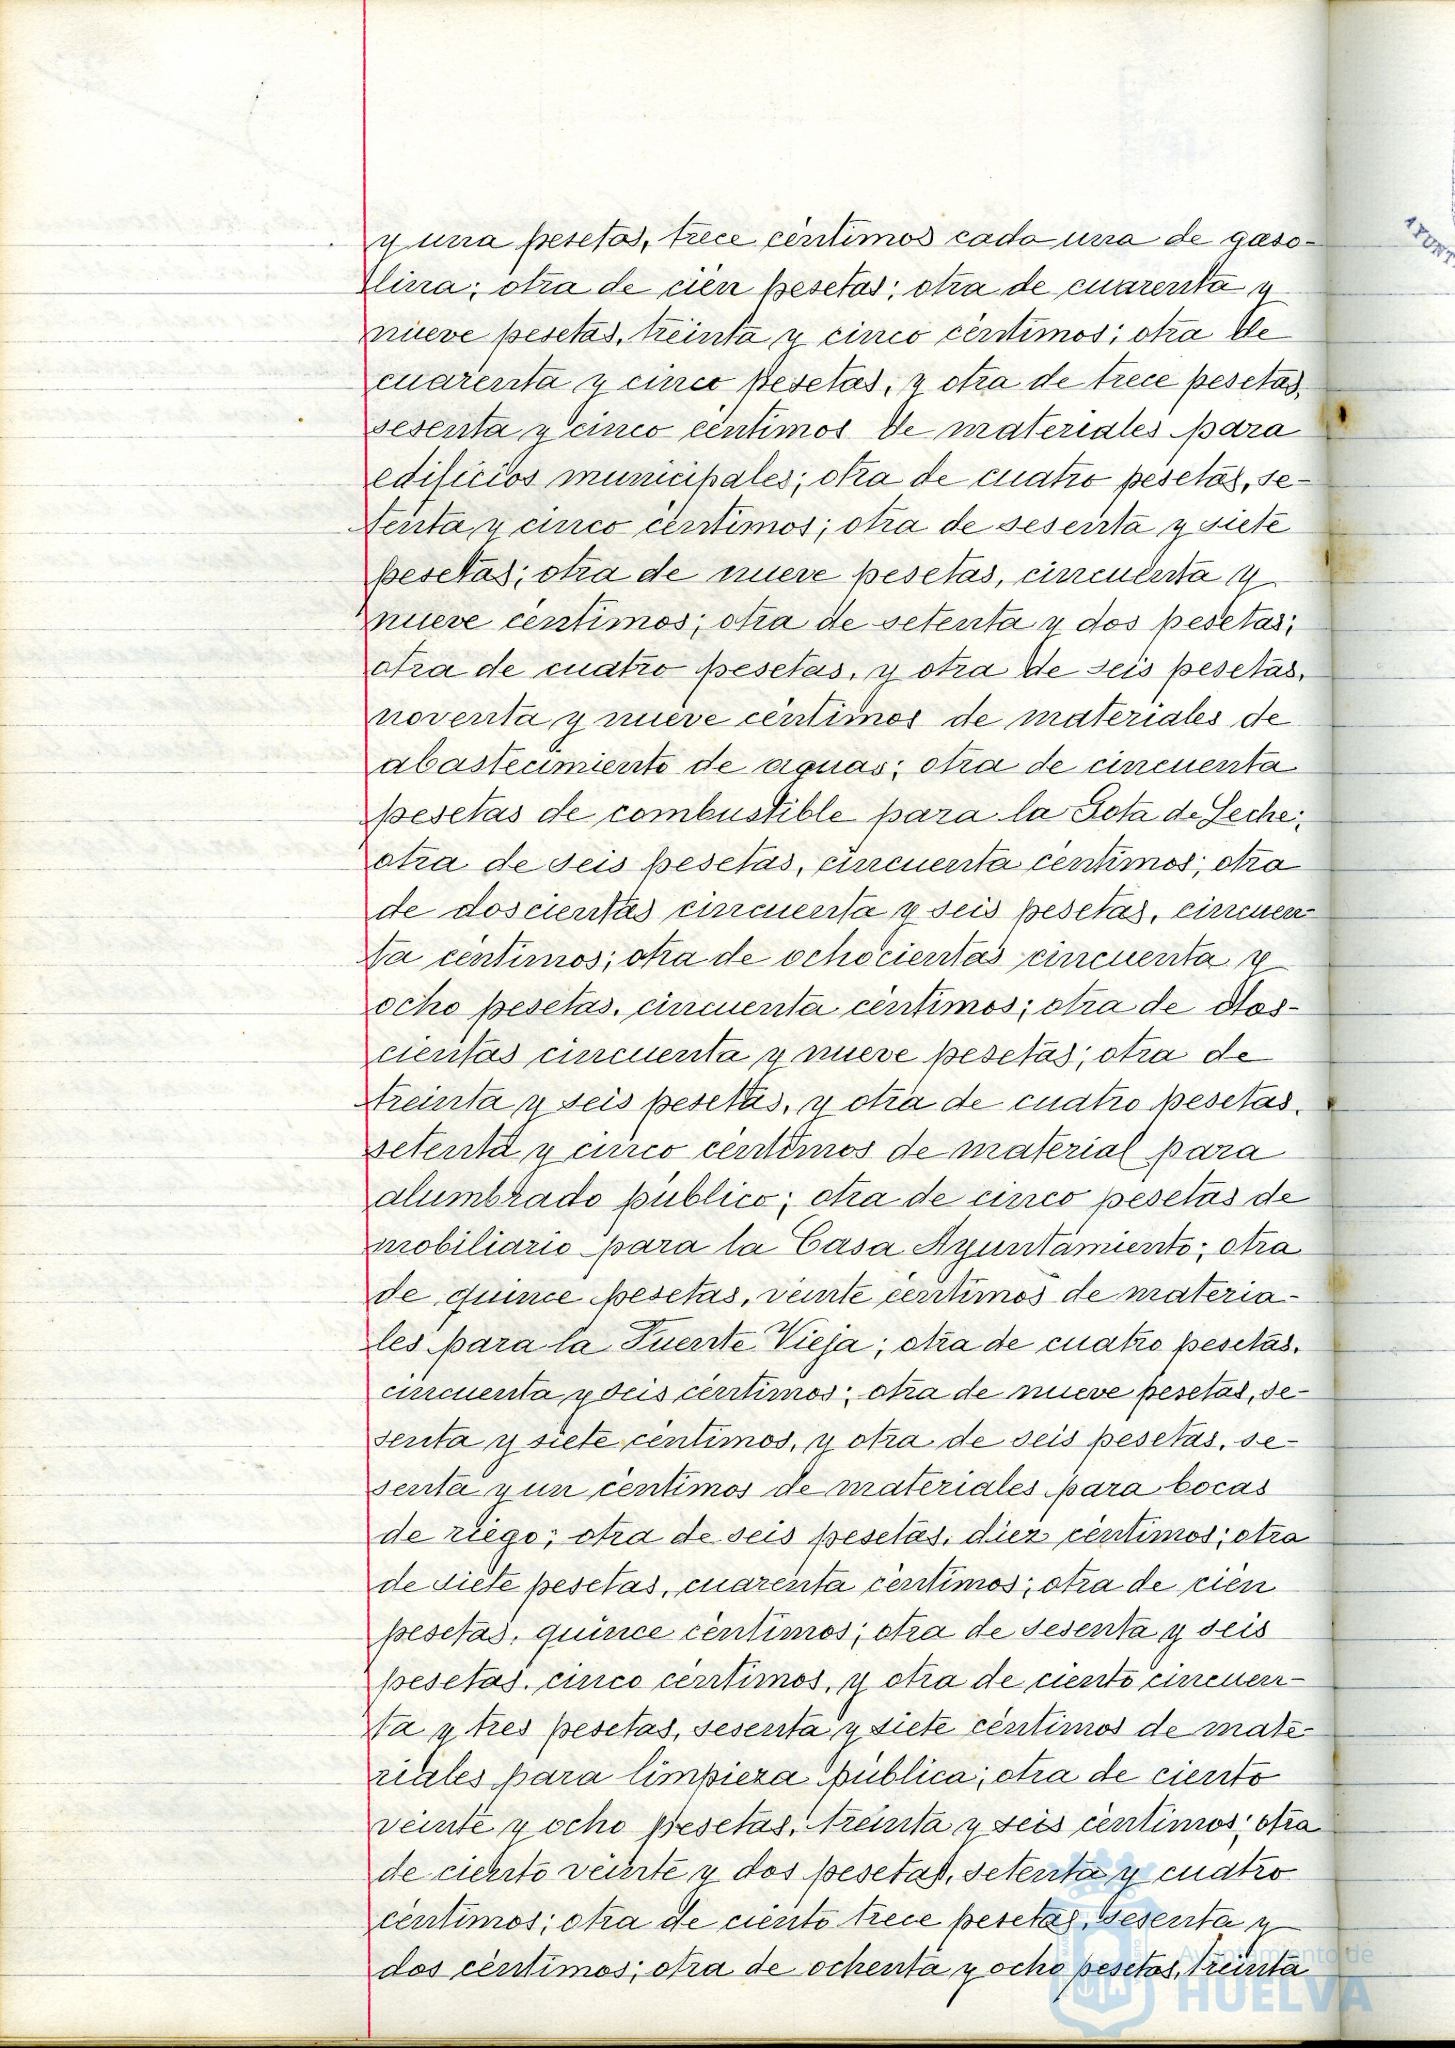 y una pesetas, trece céntimos cada una de gaso-
lina; otra de cien pesetas; otra de cuarenta y
nueve pesetas, treinta y cinco céntimos; otra de
cuarenta y cinco pesetas, y otra de trece pesetas,
sesenta y cinco céntimos de materiales para
edificios municipales; otra de cuatro pesetas, se-
tenta y cinco céntimos; otra de sesenta y siete
pesetas; otra de nueve pesetas, cincuenta y
nueve céntimos; otra de setenta y dos pesetas;
otra de cuatro pesetas, y otra de seis pesetas,
noventa y nueve céntimos de materiales de
abastecimiento de aguas; otra de cincuenta
pesetas de combustible para la Gota de Leche;
otra de seis pesetas, cincuenta céntimos; otra
de doscientas cincuenta y seis pesetas, cincuen-
ta céntimos; otra de ochocientas cincuenta y
ocho pesetas, cincuenta céntimos; otra de dos-
cientas cincuenta y nueve pesetas; otra de
treinta y seis pesetas, y otra de cuatro pesetas,
setenta y cinco céntimos de material para
alumbrado público; otra de cinco pesetas de
mobiliario para la Casa Ayuntamiento; otra
de quince pesetas, veinte céntimos de materia-
les para la Fuente Vieja; otra de cuatro pesetas,
cincuenta y seis céntimos; otra de nueve pesetas, se-
senta y siete céntimos, y otra de seis pesetas, se-
senta y un céntimos de materiales para bocas
de riego; otra de seis pesetas, diez céntimos; otra
de siete pesetas, cuarenta céntimos; otra de cien
pesetas, quince céntimos; otra de sesenta y seis
pesetas, cinco céntimos, y otra de ciento cincuen-
ta y tres pesetas, sesenta y siete céntimos de mate-
riales para limpieza pública; otra de ciento
veinte y ocho pesetas, treinta y seis céntimos; otra
de ciento veinte y dos pesetas, setenta y cuatro
céntimos; otra de ciento trece pesetas, sesenta y
dos céntimos; otra de ochenta y ocho pesetas, treinta
Ayuntamiento de
HUELVA
AYUNT